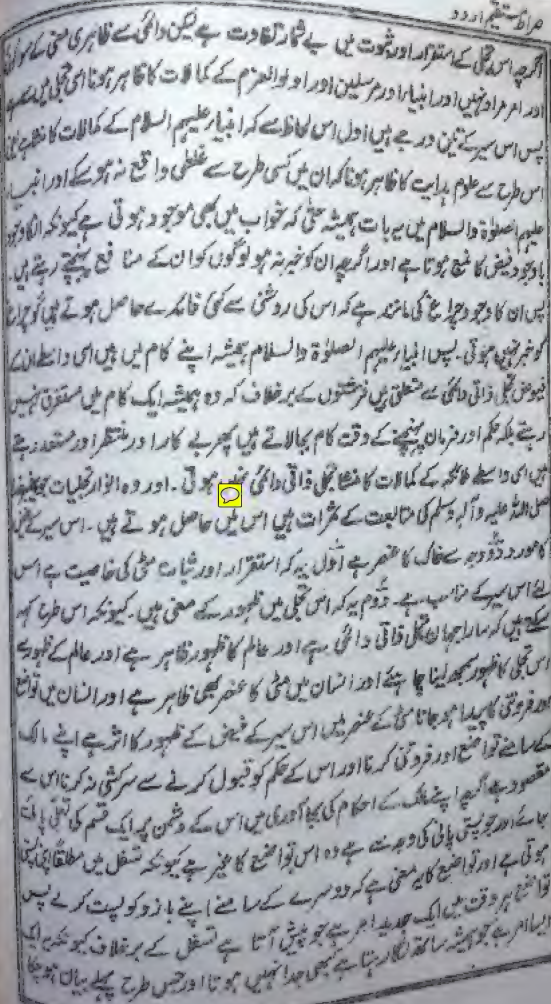 صراط مستقیم اردو
اگرچہ اس تجلی کے استقرار اور ثبوت میں بے شمار تفاوت ہے لیکن دائمی سے ظاہری معنی کے سوا کوئی
اور امر مراد نہیں اور انبیاء اور مرسلین اور اولوالعزم کے کمالات کا ظاہر ہونا اسی تجلی میں سے ہے
پس اس سیر کے تین درجے ہیں اول اس لحاظ سے کہ انبیاء علیہم السلام کے کمالات کا منشا ہے یعنی
اس طرح سے علوم ہدایت کا ظاہر ہونا کہ ان میں کسی طرح سے غلطی واقع نہ ہو سکے اور انبیاء
علیہم الصلوٰۃ والسلام میں یہ بات ہمیشہ حتیٰ کہ خواب میں بھی موجود ہوتی ہے کیونکہ ان کا وجود
باوجود فیض کا منبع ہوتا ہے اور اگرچہ ان کو خبر نہ ہو لوگوں کو ان کے منافع پہنچتے رہتے ہیں
پس ان کا وجود چراغ کی مانند ہے کہ اس کی روشنی سے کئی فائدے حاصل ہوتے ہیں گو چراغ
کو خبر نہیں ہوتی ۔ پس انبیاء علیہم الصلوٰۃ والسلام ہمیشہ اپنے کام میں ہیں اسی واسطے ان کے
فیوض تجلی ذاتی دائمی سے متعلق ہیں فرشتوں کے برخلاف کہ وہ ہمیشہ ایک کام میں مستغرق نہیں
رہتے بلکہ حکم اور فرمان پہنچنے کے وقت کام بجا لاتے ہیں پھر بے کار اور منتظر اور مستعد رہتے
ہیں اسی واسطے ملائکہ کے کمالات کا منشا تجلی ذاتی دائمی نہیں ہوتی ۔ اور وہ انوار تجلیات جو پیغمبر
صلی اللہ علیہ وآلہ وسلم کی متابعت کے ثمرات ہیں اس میں حاصل ہوتے ہیں ۔ اس سیر کے فیض
کا مورد دو وجہ سے خاک کا عنصر ہے اول یہ کہ استقرار اور ثبات مٹی کی خاصیت ہے اس
لئے اس سیر کے مناسب ہے ۔ دوم یہ کہ اس تجلی میں ظہور کے معنی ہیں ۔ کیونکہ اس طرح کہہ
سکتے ہیں کہ سارا جہان تجلی ذاتی دائمی ہے اور عالم کا ظہور ظاہر ہے اور عالم کے ظہور سے
اس تجلی کا ظہور سمجھ لینا چاہئے اور انسان میں مٹی کا عنصر بھی ظاہر ہے اور انسان میں تواضع
اور فروتنی کا پیدا ہو جانا مٹی کے عنصر میں اس سیر کے فیض کے ظہور کا اثر ہے اپنے مالک
کے سامنے تواضع اور فروتنی کرنا اور اس کے حکم کو قبول کرنے سے سرکشی نہ کرنا اس سے
مقصود ہے اگرچہ اپنے مالک کے احکام کی بجا آوری میں اس کے دشمن پر ایک قسم کی تعلی پائی
جائے اور جو پستی پائی کی وجہ سے ہے وہ اس تواضع کا غیر ہے کیونکہ تسفل میں مطلقا پستی
ہوتی ہے اور تواضع کا یہ معنی ہے کہ دوسرے کے سامنے اپنے بازو کو پست کرے پس
تواضع ہر وقت میں ایک جدید امر ہے جو پیش آتا ہے تسفل کے برخلاف کیونکہ یہ ایک
ایسا امر ہے جو ہمیشہ ساتھ لگا رہتا ہے کبھی جدا نہیں ہوتا اور جس طرح پہلے بیان ہو چکا